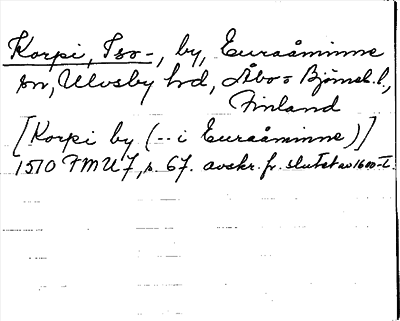 Korpi, Iso-, by, Euraåminne
sn, Ulvsby hd, Åbo o Björneb. l.,
Finland
[Korpi by (-- i Euraåminne)]
1510 FMU 7, s. 67. avskr. fr. slutet av 1600-t.